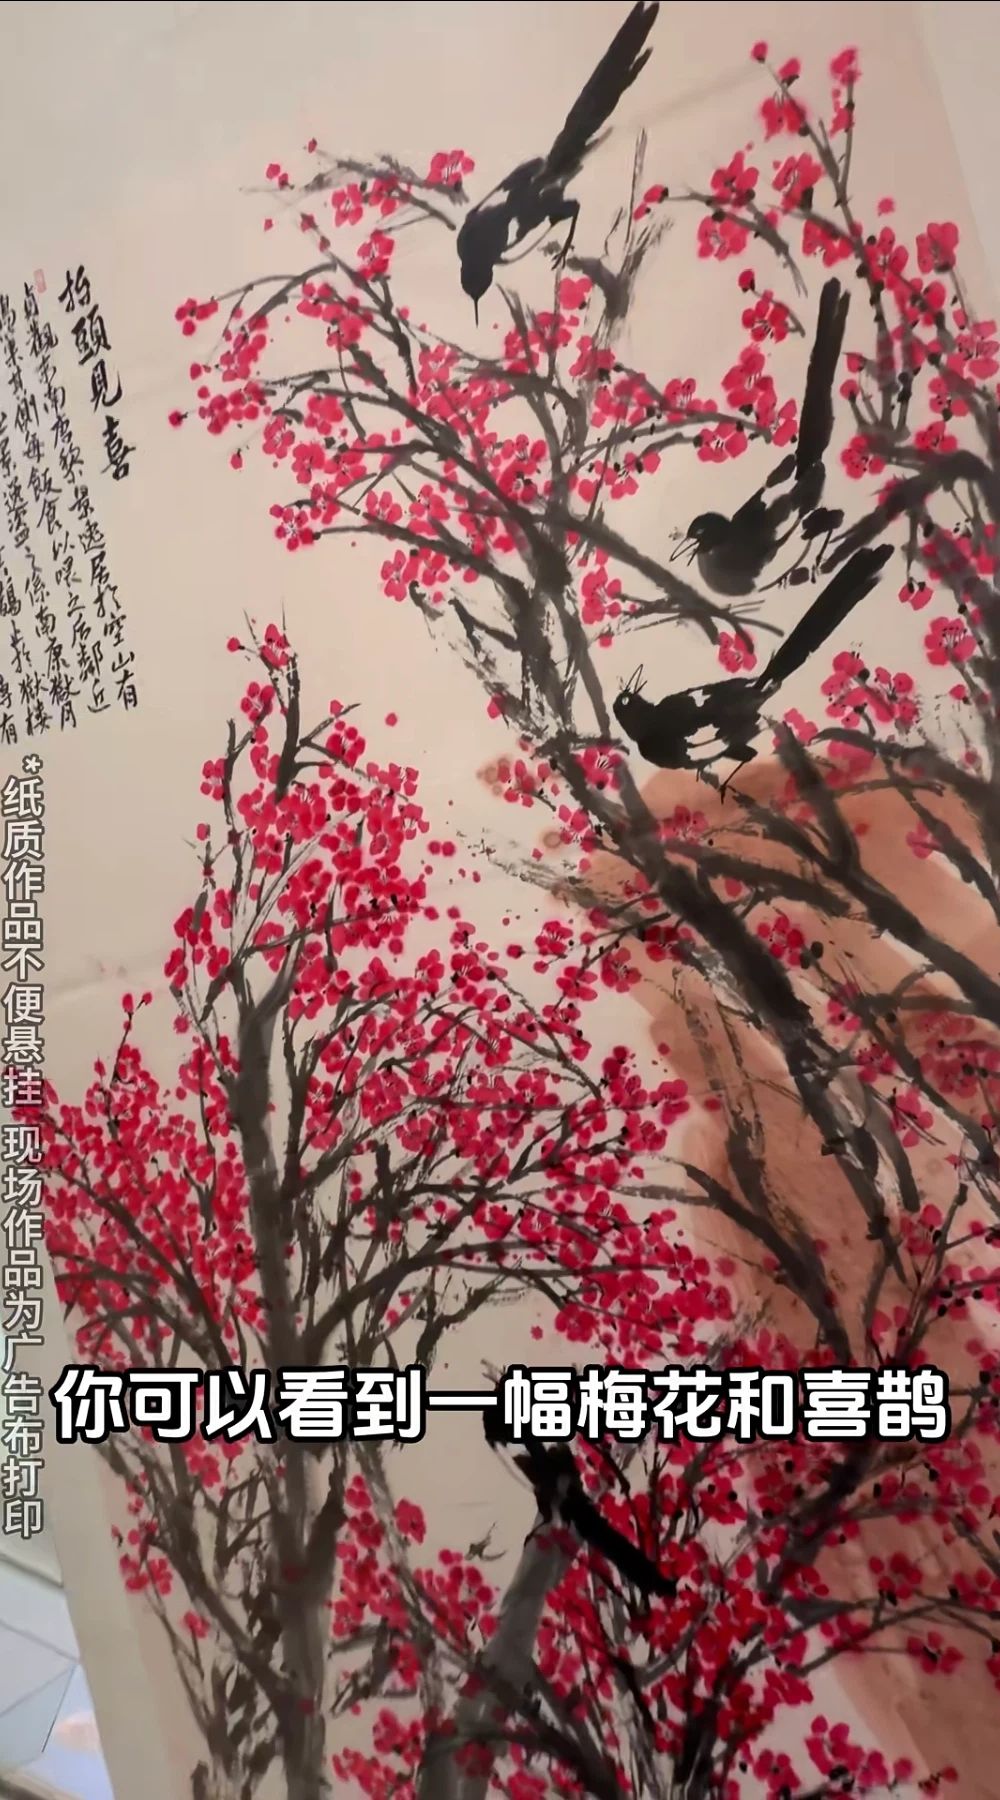 抬頭見喜
貞觀末南唐黎景逸居於空山有
鵲巢其側每飯食以喂之后鄰近
*纸质作品不便悬挂 现场作品为广告布打印
你可以看到一幅梅花和喜鹊